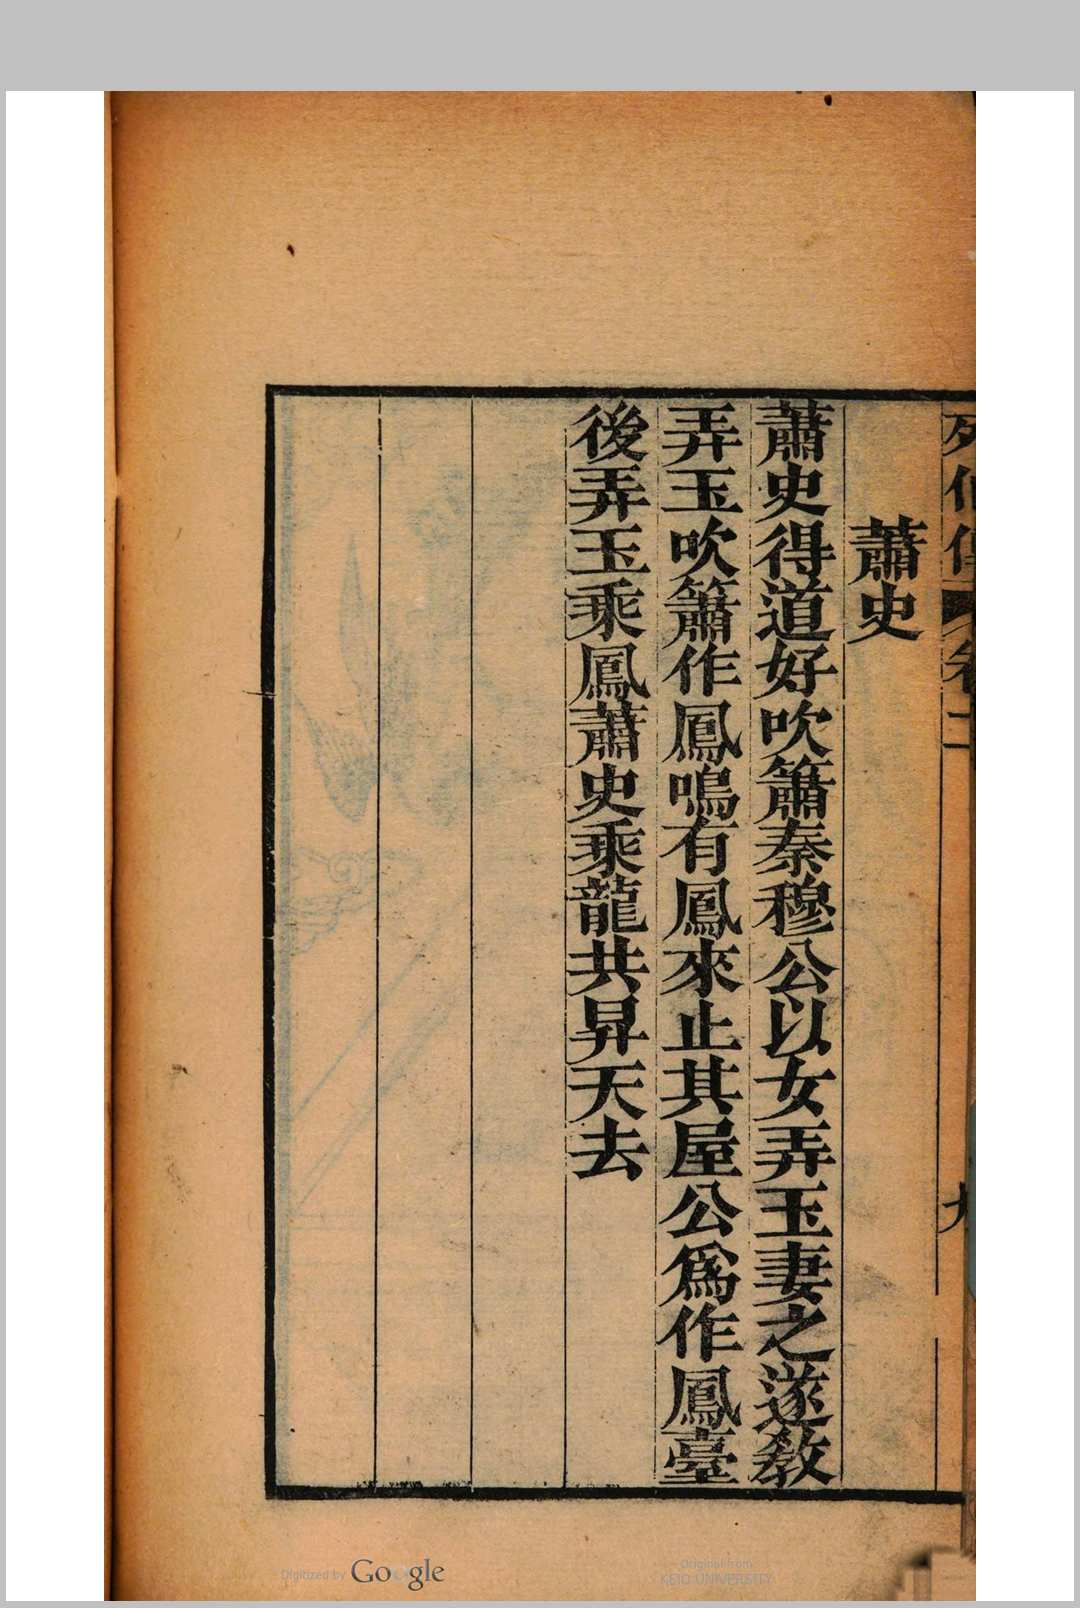 列仙傳 卷二 九
蕭史
蕭史得道好吹簫秦穆公以女弄玉妻之遂教
弄玉吹簫作鳳鳴有鳳來止其屋公爲作鳳臺
後弄玉乘鳳蕭史乘龍共昇天去
Digitized by Google
Original from
KEIO UNIVERSITY